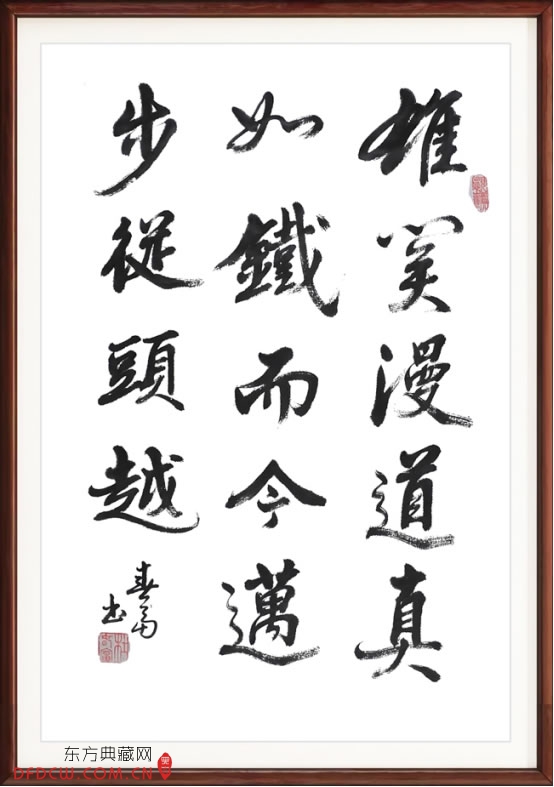 雄関漫道真
如鐵而今邁
步從頭越
春富
书
东方典藏网
DFDCW.COM.CN